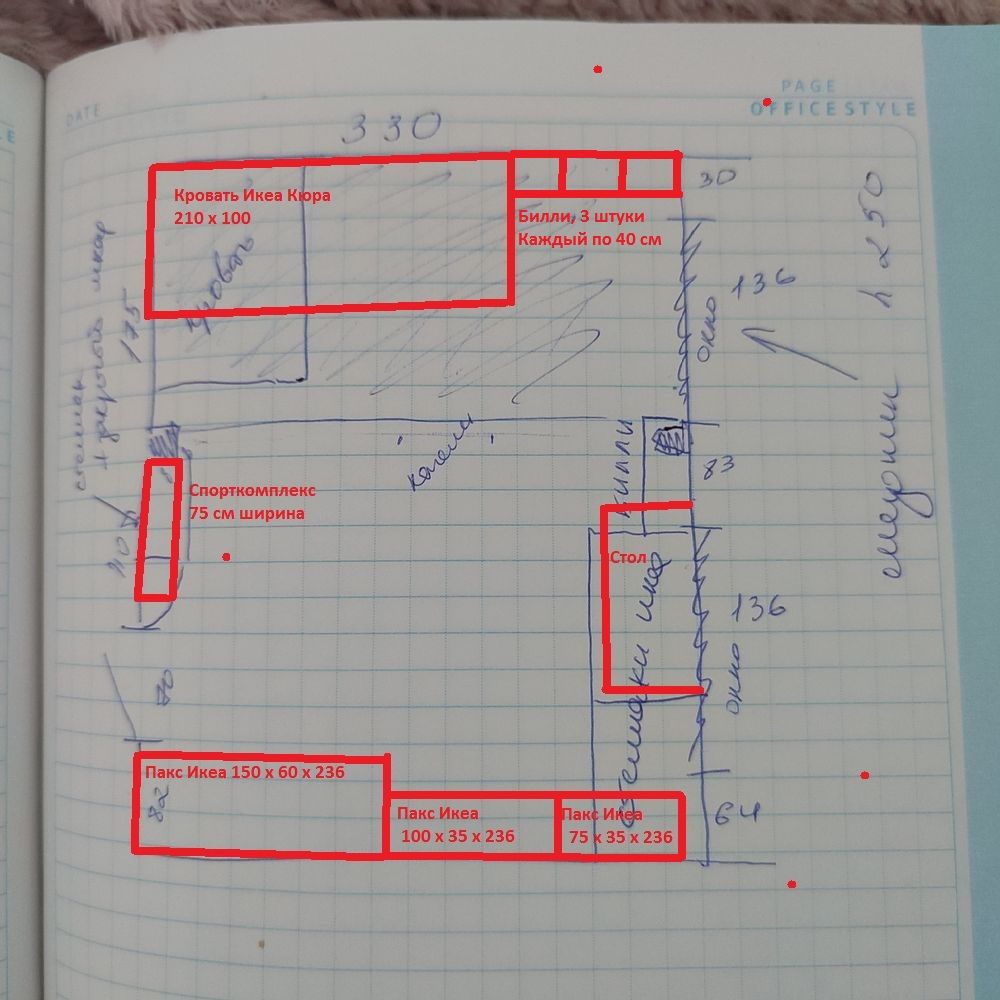 DATE
PAGE
OFFICE STYLE
330
Кровать Икеа Кюра
210 x 100
кровать
Билли, 3 штуки
Каждый по 40 см
30
136
окно
h 250
175
83
качели
билли
Спорткомплекс
75 см ширина
Стол
стеллажи икеа
136
окно
70
Пакс Икеа 150 x 60 x 236
82
Пакс Икеа
100 x 35 x 236
Пакс Икеа
75 x 35 x 236
64